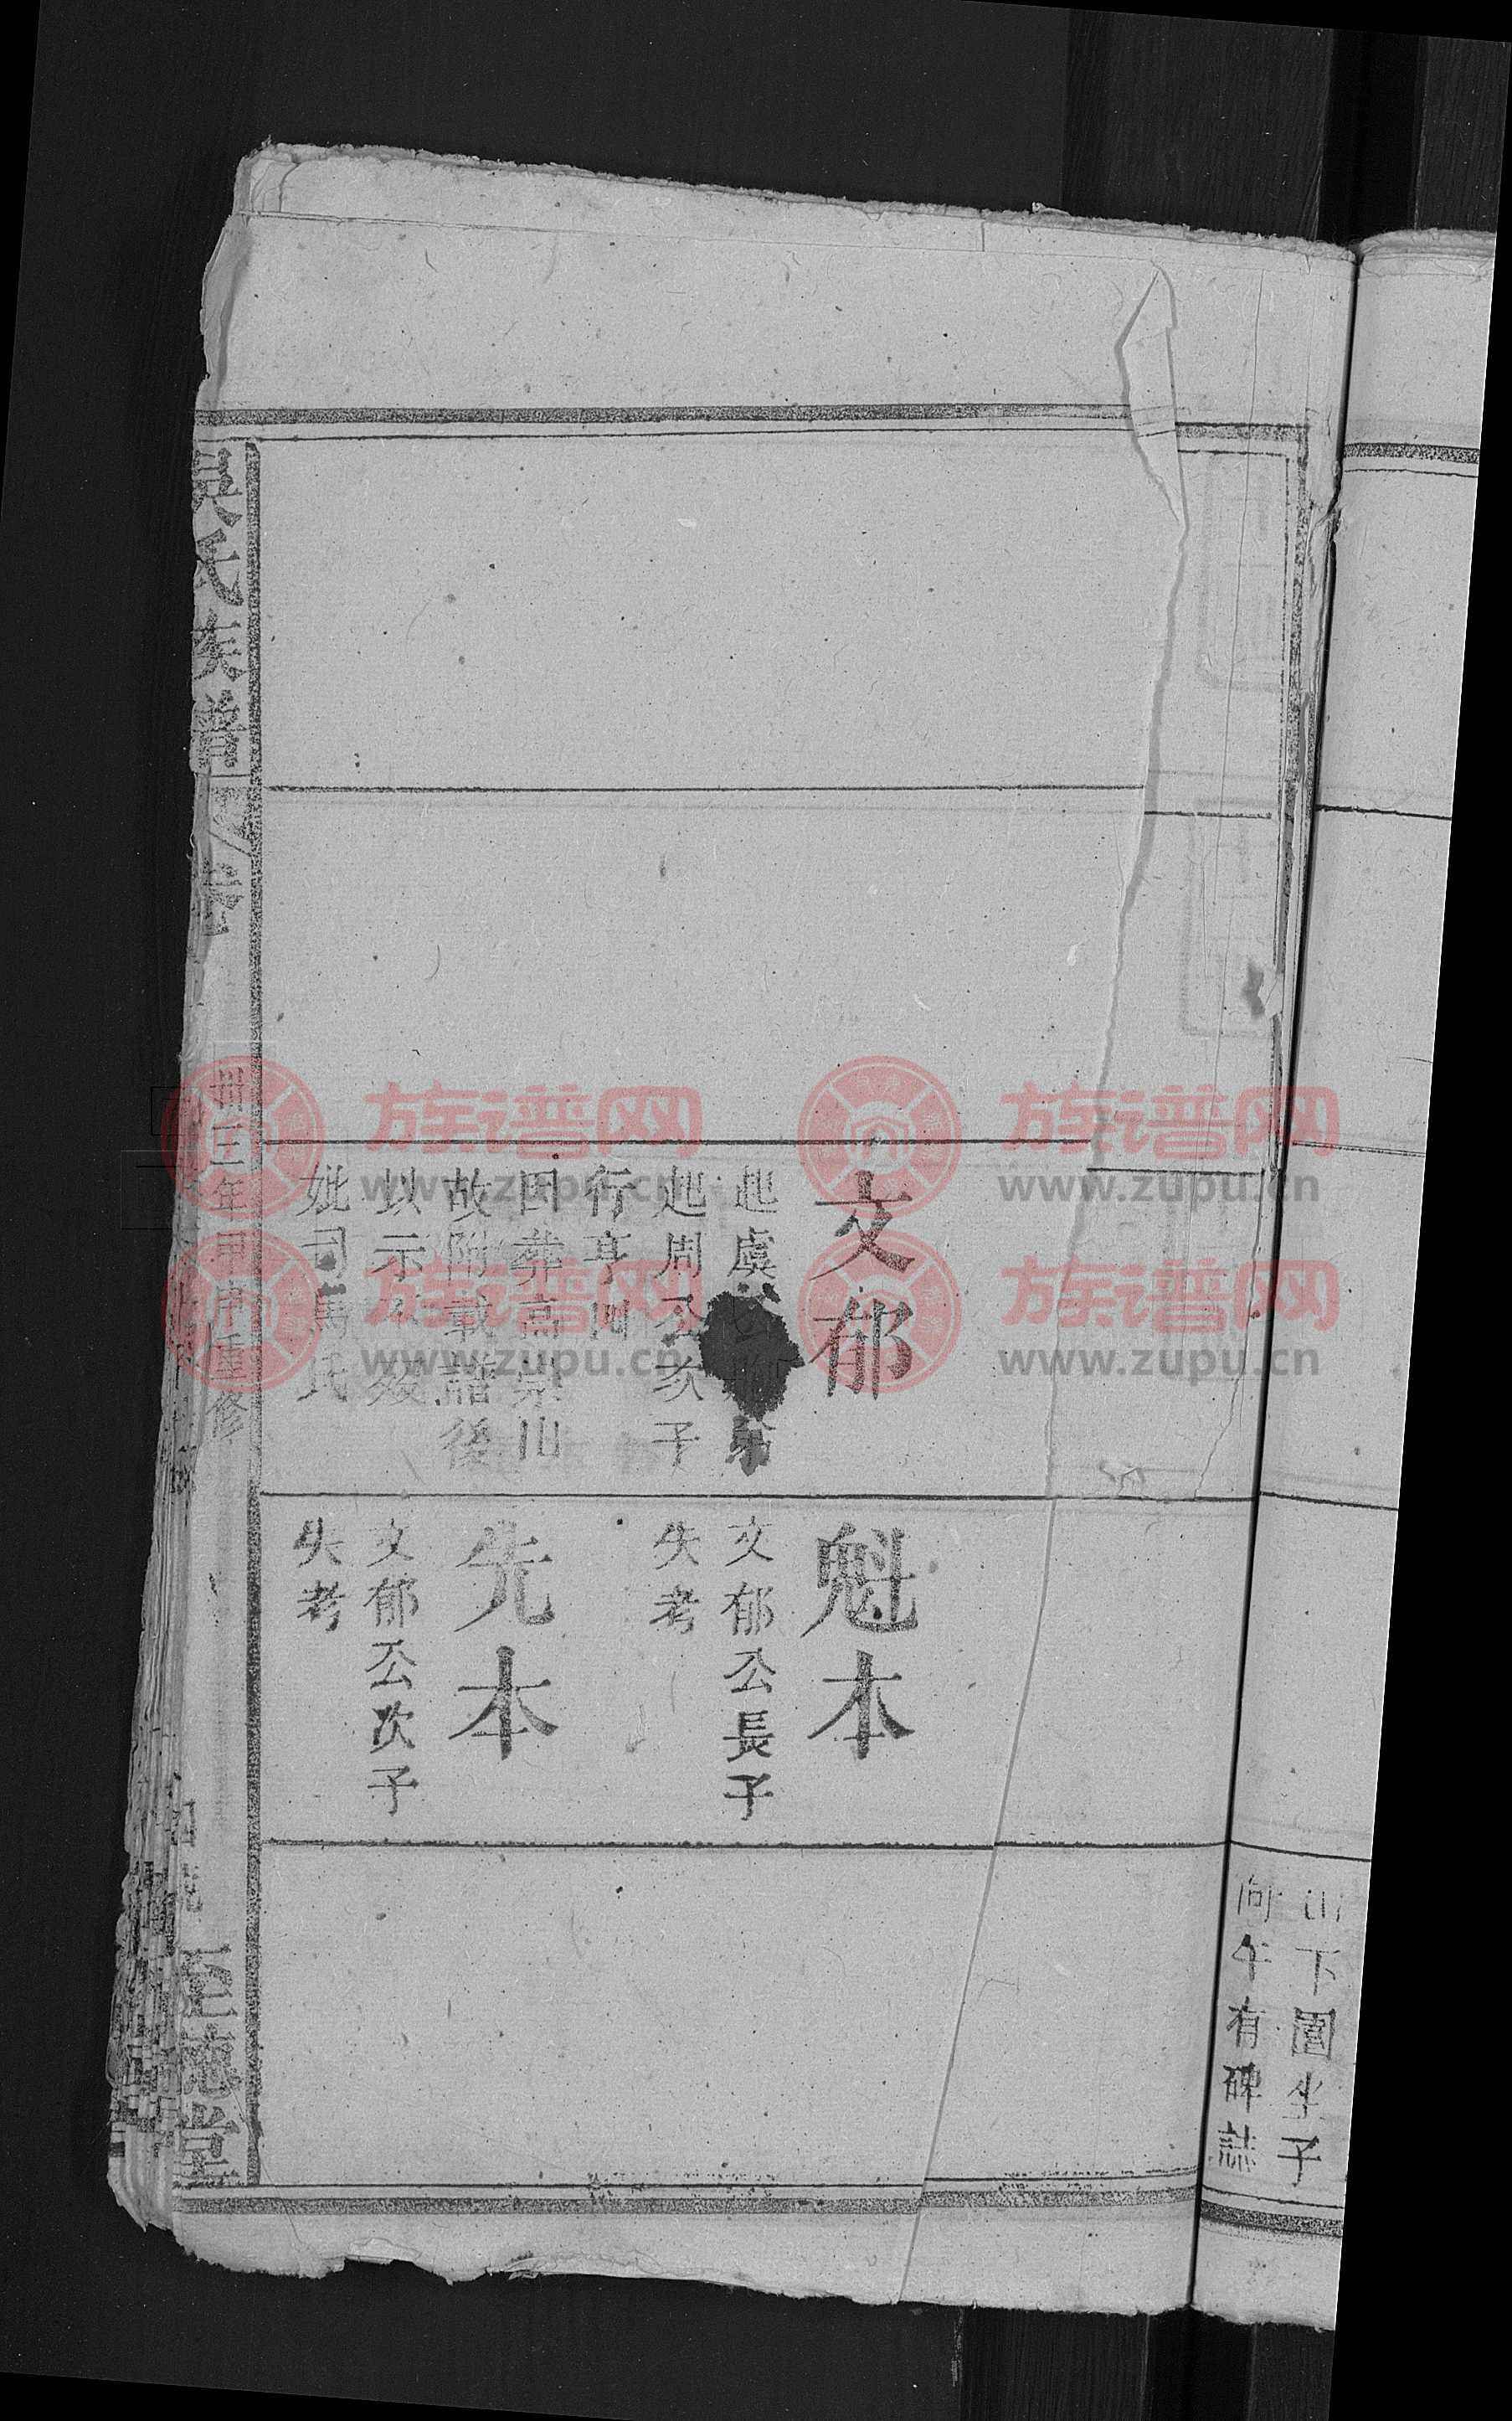 山下園坐子
向午有碑誌
文郁
起周公次子
行亨四
田葬高崇山
故附載譜後
以示不毀
妣司馬氏
魁本
文郁公長子
失考
先本
文郁公次子
失考
吳氏族譜
卅三年甲申重修
至德堂
族谱网
www.zupu.cn
族谱网
www.zupu.cn
族谱网
www.zupu.cn
族谱网
www.zupu.cn